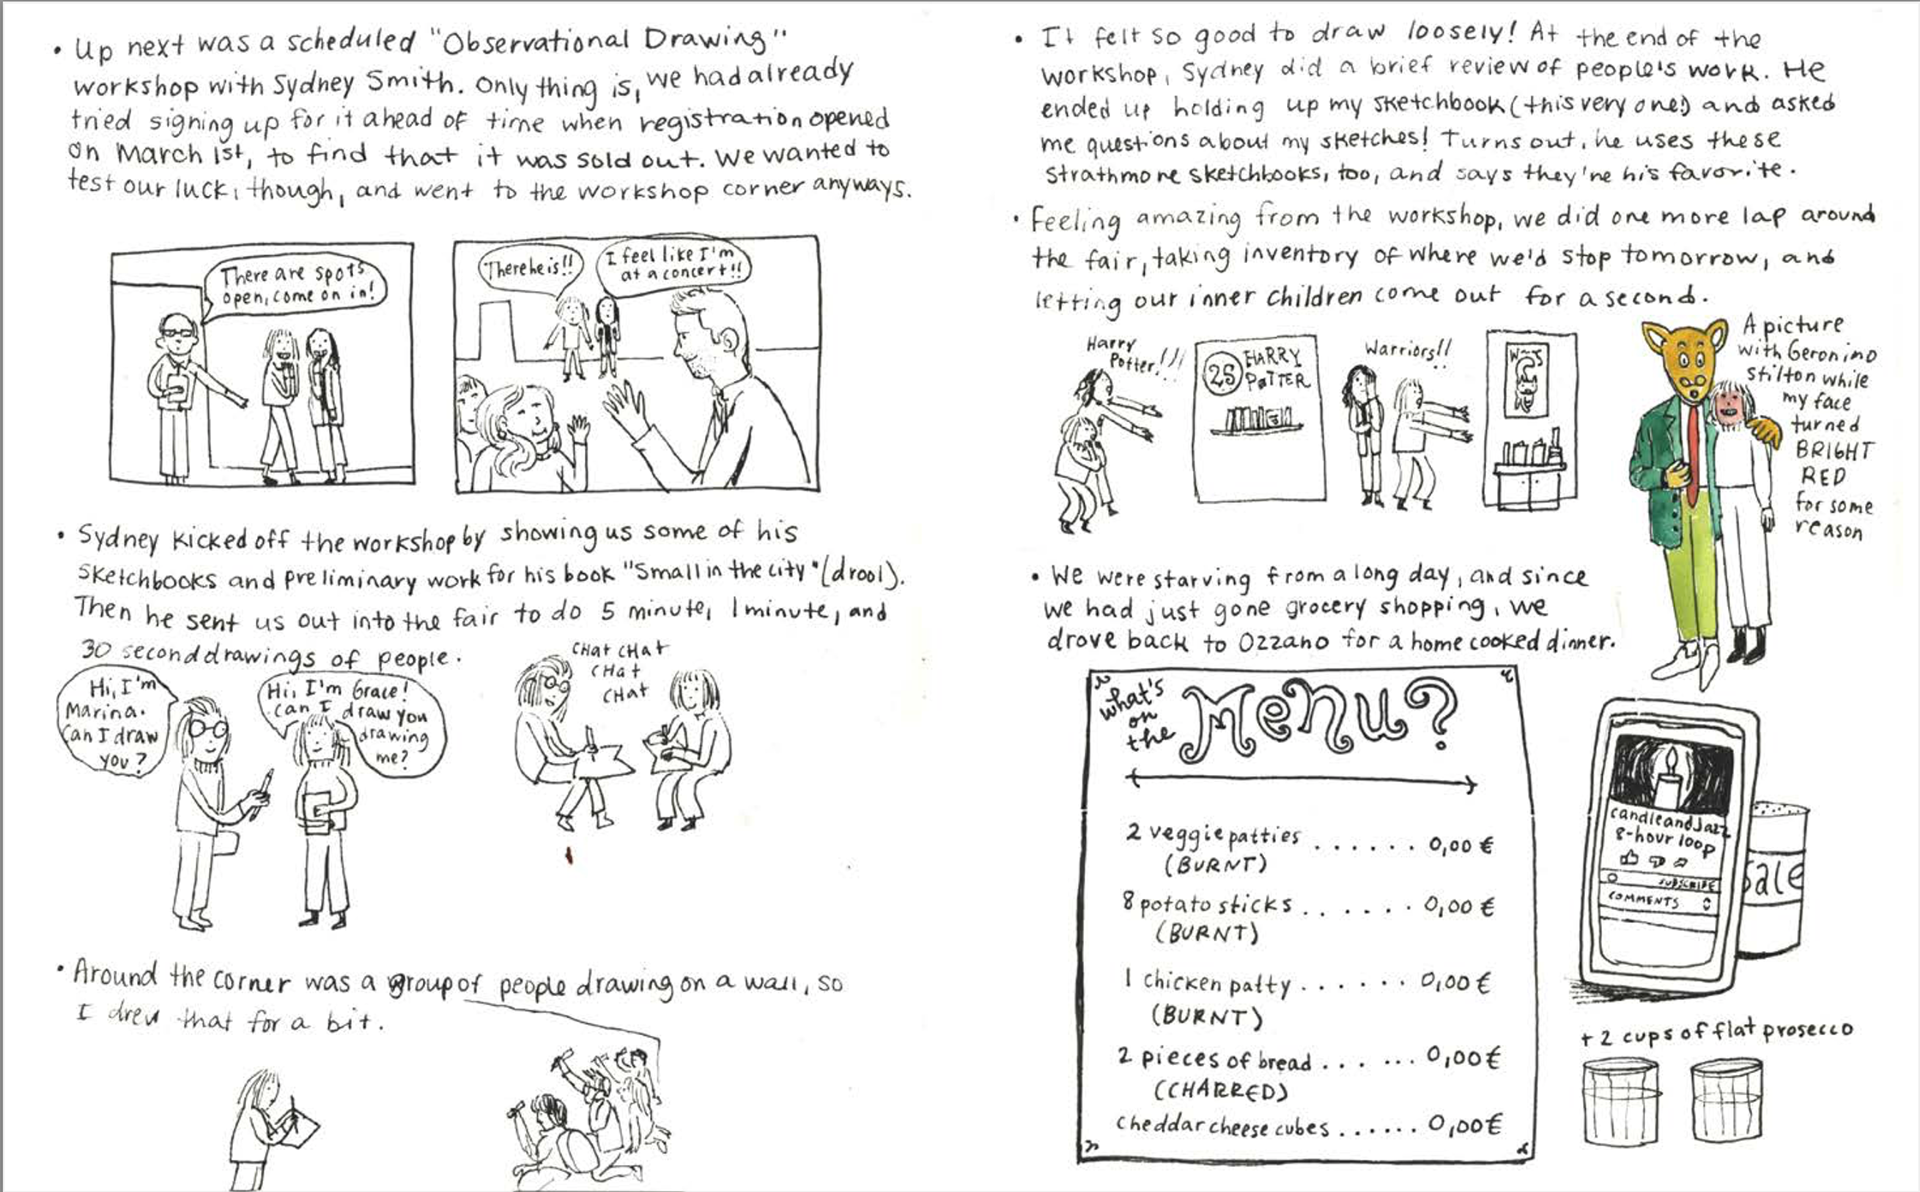 • Up next was a scheduled "Observational Drawing"
workshop with Sydney Smith. Only thing is, we had already
tried signing up for it ahead of time when registration opened
on March 1st, to find that it was sold out. We wanted to
test our luck, though, and went to the workshop corner anyways.
There are spots
open, come on in!
There he is!!
I feel like I'm
at a concert!!
• Sydney kicked off the workshop by showing us some of his
sketchbooks and preliminary work for his book "Small in the city" (drool).
Then he sent us out into the fair to do 5 minute, 1 minute, and
30 second drawings of people.
Hi, I'm
Marina.
Can I draw
you?
Hi, I'm Grace!
Can I draw you
drawing
me?
CHat CHat
CHat
CHat
• Around the corner was a group of people drawing on a wall, so
I drew that for a bit.
• It felt so good to draw loosely! At the end of the
workshop, Sydney did a brief review of people's work. He
ended up holding up my sketchbook (this very one!) and asked
me questions about my sketches! Turns out, he uses these
Strathmore sketchbooks, too, and says they're his favorite.
• Feeling amazing from the workshop, we did one more lap around
the fair, taking inventory of where we'd stop tomorrow, and
letting our inner children come out for a second.
Harry
Potter!!!
25 HARRY
POTTER
Warriors!!
A picture
with Geronimo
Stilton while
my face
turned
BRIGHT
RED
for some
reason
• We were starving from a long day, and since
we had just gone grocery shopping, we
drove back to Ozzano for a home cooked dinner.
what's
on
the
Menu?
2 veggie patties ...... 0,00 €
(BURNT)
8 potato sticks ...... 0,00 €
(BURNT)
1 chicken patty ...... 0,00 €
(BURNT)
2 pieces of bread ... ... 0,00 €
(CHARRED)
cheddar cheese cubes ...... 0,00 €
candle and Jazz
8-hour loop
SUBSCRIBE
COMMENTS
Sale
+ 2 cups of flat prosecco